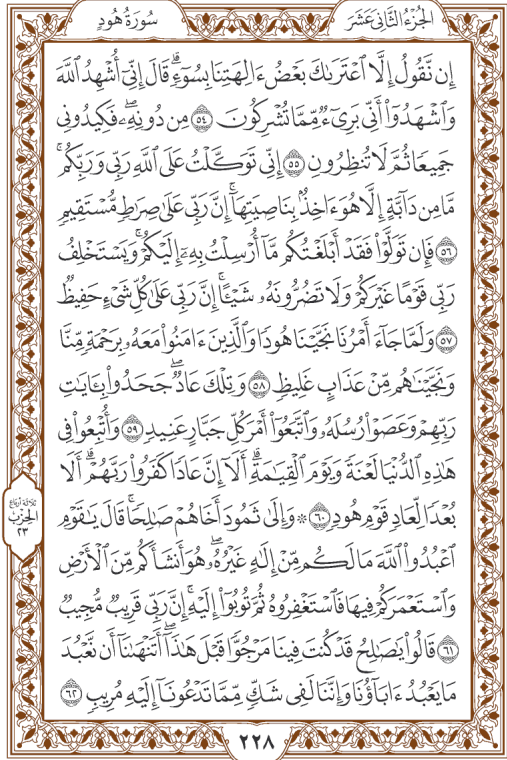 الجُزْءُ الثَّانِي عَشَرَ
سُورَةُ هُودٍ
إِن نَّقُولُ إِلَّا ٱعْتَرَىٰكَ بَعْضُ ءَالِهَتِنَا بِسُوٓءٖۗ قَالَ إِنِّيٓ أُشْهِدُ ٱللَّهَ
وَٱشْهَدُوٓاْ أَنِّي بَرِيٓءٞ مِّمَّا تُشْرِكُونَ ٥٤ مِن دُونِهِۦۖ فَكِيدُونِي
جَمِيعٗا ثُمَّ لَا تُنظِرُونِ ٥٥ إِنِّي تَوَكَّلْتُ عَلَى ٱللَّهِ رَبِّي وَرَبِّكُمۚ
مَّا مِن دَآبَّةٍ إِلَّا هُوَ ءَاخِذُۢ بِنَاصِيَتِهَآۚ إِنَّ رَبِّي عَلَىٰ صِرَٰطٖ مُّسْتَقِيمٖ
٥٦ فَإِن تَوَلَّوْاْ فَقَدْ أَبْلَغْتُكُم مَّآ أُرْسِلْتُ بِهِۦٓ إِلَيْكُمْۚ وَيَسْتَخْلِفُ
رَبِّي قَوْمًا غَيْرَكُمْ وَلَا تَضُرُّونَهُۥ شَيْـًٔاۚ إِنَّ رَبِّي عَلَىٰ كُلِّ شَيْءٍ حَفِيظٞ
٥٧ وَلَمَّا جَآءَ أَمْرُنَا نَجَّيْنَا هُودٗا وَٱلَّذِينَ ءَامَنُواْ مَعَهُۥ بِرَحْمَةٖ مِّنَّا
وَنَجَّيْنَٰهُم مِّنْ عَذَابٍ غَلِيظٖ ٥٨ وَتِلْكَ عَادٞۖ جَحَدُواْ بِـَٔايَٰتِ
رَبِّهِمْ وَعَصَوْاْ رُسُلَهُۥ وَٱتَّبَعُوٓاْ أَمْرَ كُلِّ جَبَّارٍ عَنِيدٖ ٥٩ وَأُتْبِعُواْ فِي
هَٰذِهِ ٱلدُّنْيَا لَعْنَةٗ وَيَوْمَ ٱلْقِيَٰمَةِۗ أَلَآ إِنَّ عَادٗا كَفَرُواْ رَبَّهُمْۗ أَلَا
بُعْدٗا لِّعَادٖ قَوْمِ هُودٖ ٦٠ ۞ وَإِلَىٰ ثَمُودَ أَخَاهُمْ صَٰلِحٗاۚ قَالَ يَٰقَوْمِ
ٱعْبُدُواْ ٱللَّهَ مَا لَكُم مِّنْ إِلَٰهٍ غَيْرُهُۥۖ هُوَ أَنشَأَكُم مِّنَ ٱلْأَرْضِ
وَٱسْتَعْمَرَكُمْ فِيهَا فَٱسْتَغْفِرُوهُ ثُمَّ تُوبُوٓاْ إِلَيْهِۚ إِنَّ رَبِّي قَرِيبٞ مُّجِيبٞ
٦١ قَالُواْ يَٰصَٰلِحُ قَدْ كُنتَ فِينَا مَرْجُوّٗا قَبْلَ هَٰذَآۖ أَتَنْهَىٰنَآ أَن نَّعْبُدَ
مَا يَعْبُدُ ءَابَآؤُنَا وَإِنَّنَا لَفِي شَكّٖ مِّمَّا تَدْعُونَآ إِلَيْهِ مُرِيبٖ ٦٢
ثلاثة أرباع
الحِزْب
٢٣
٢٢٨